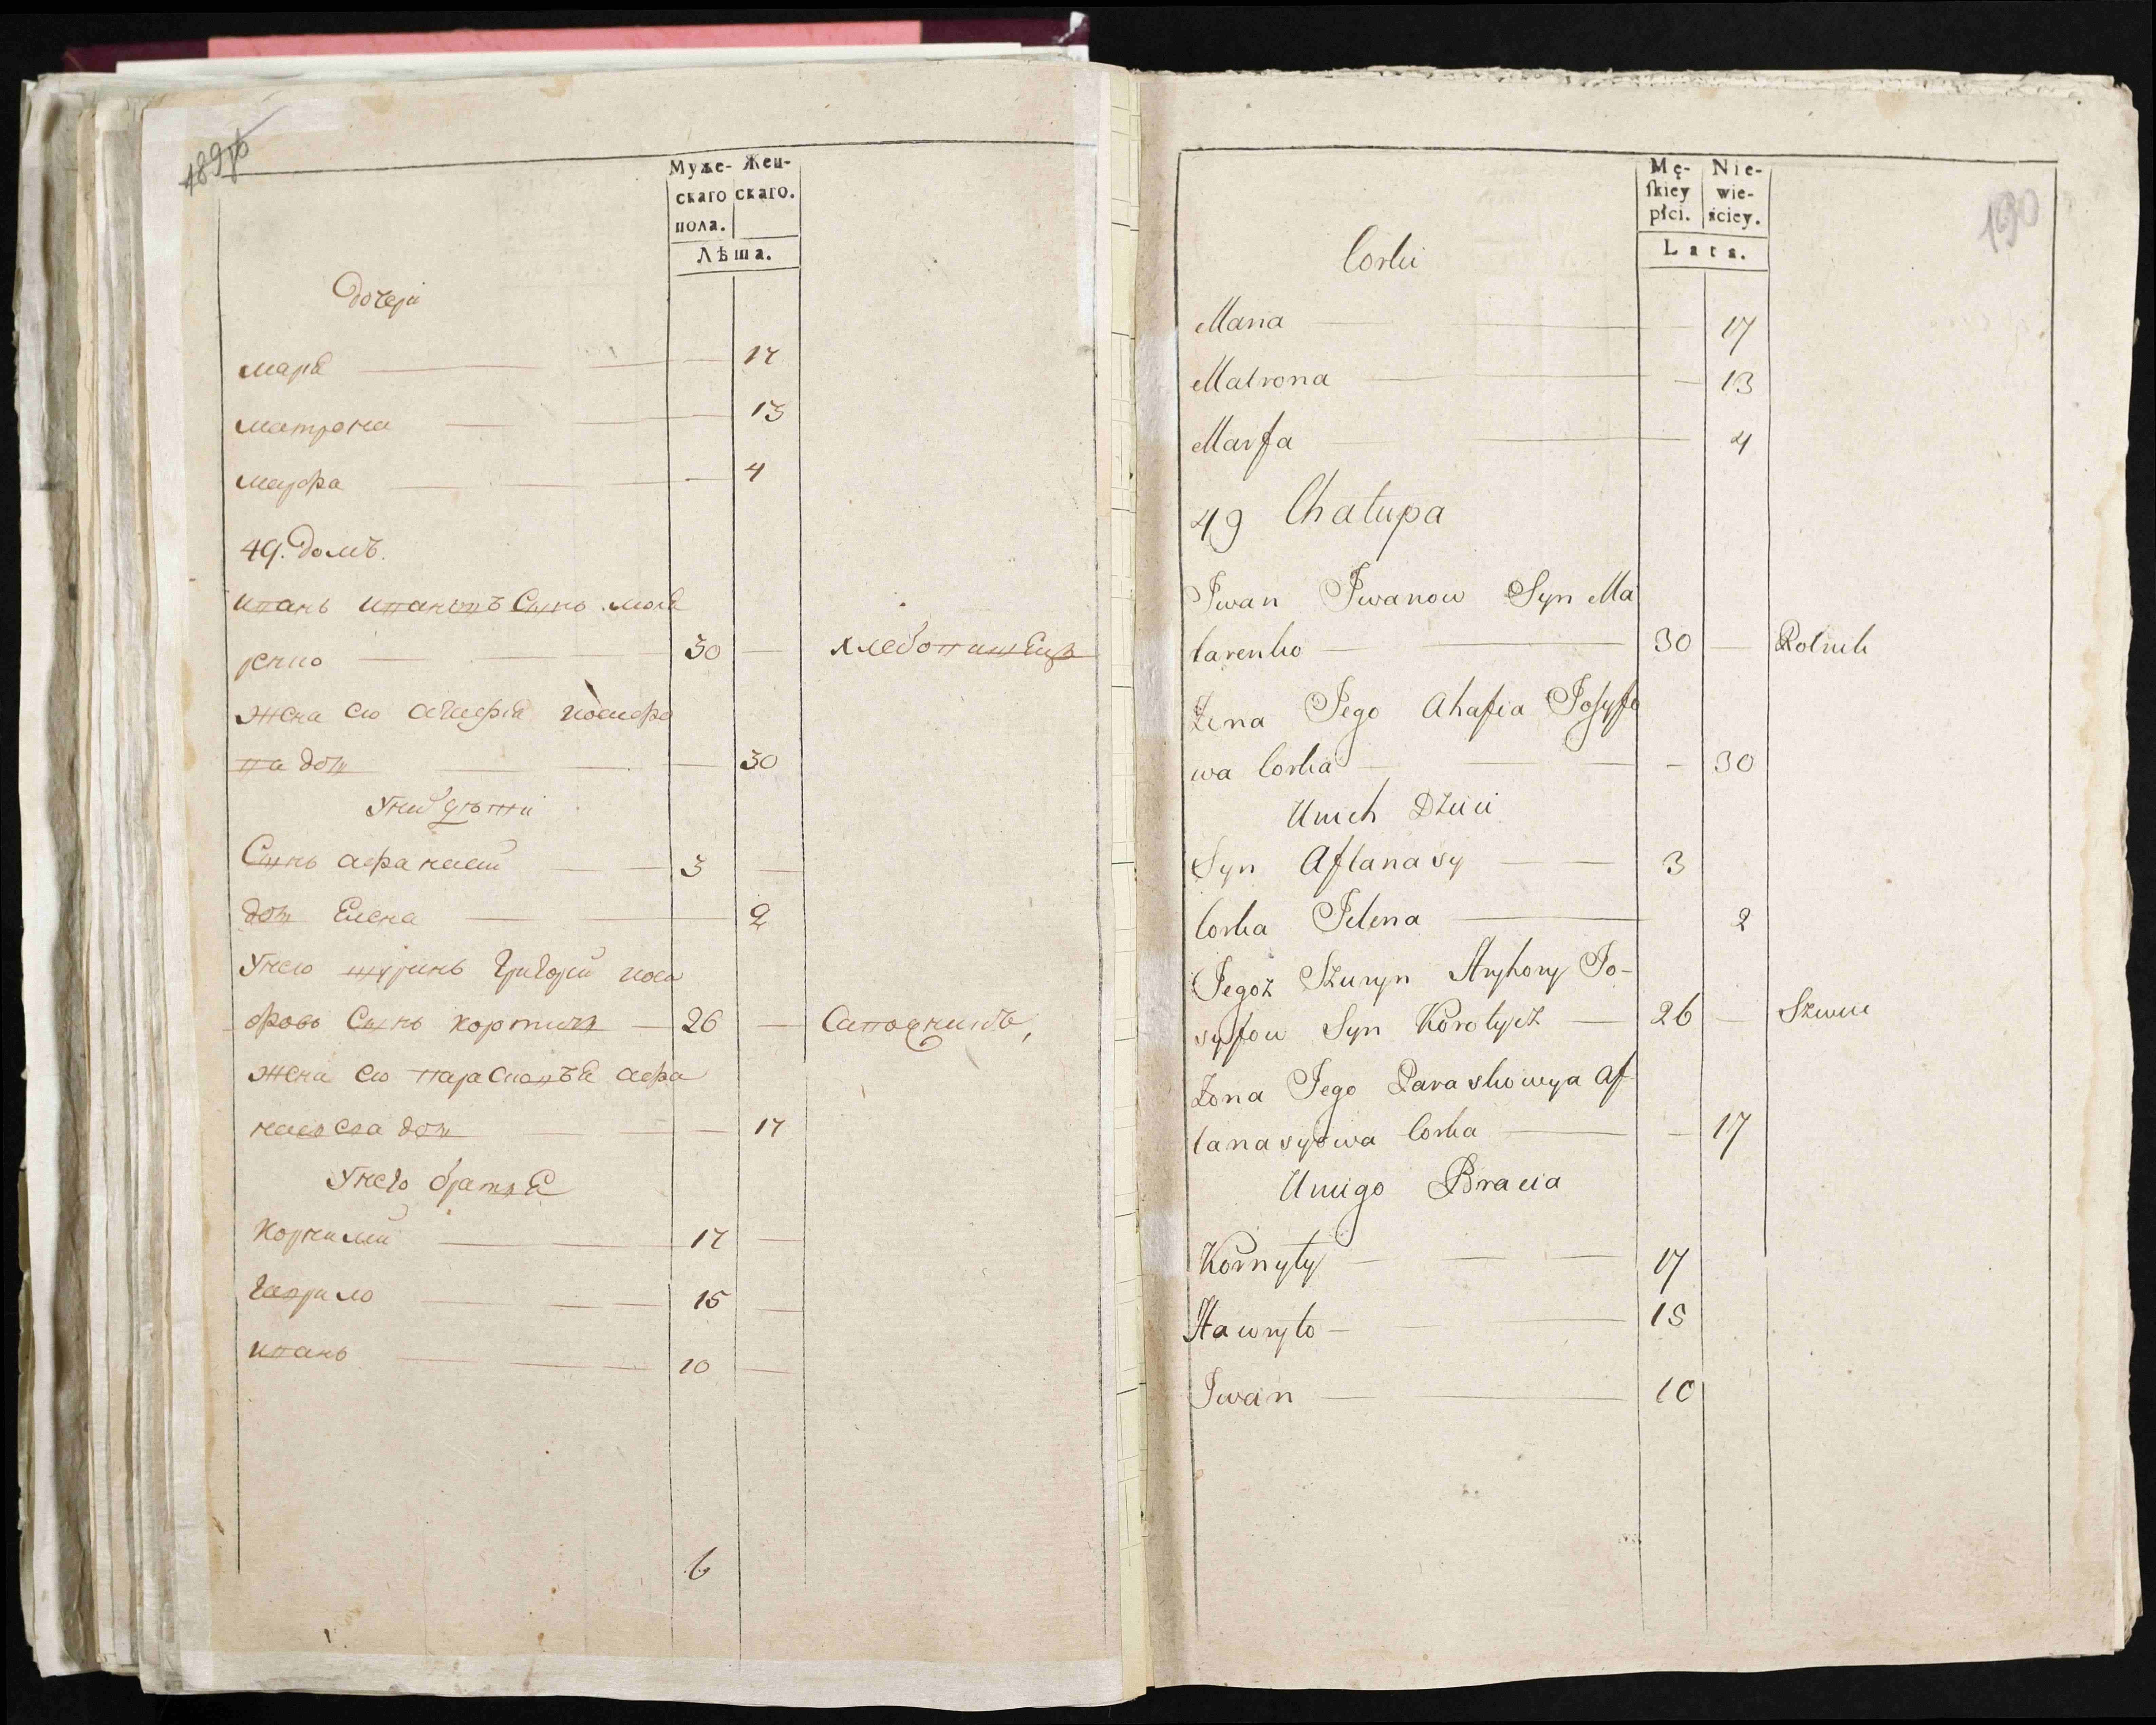 189об
Муже-
скаго
пола.
Жен-
скаго.
Лѣта.
Дочери
марія — 17
матрона — 13
марфа — 4
49. домъ.
иванъ ивановъ Сынъ мака
ренко — 30 — хлебопашецъ
жена его агафія иосифо
ва дочь — 30
У нихъ дѣти
Сынъ афанасий — 3 —
дочь Елена — 2
У него шуринъ григорий иоси
фовъ Сынъ коротичъ — 26 — Сапожникъ,
жена его парасковъя афа
насьева дочь — 17
У него братья
корнилий — 17 —
гаврило — 15 —
иванъ — 10 —
6
190
Mę-
skiey
płci.
Nie-
wie-
sciey.
Lata.
Corki
Maria — 17
Matrona — 13
Marfa — 4
49 Chałupa
Iwan Iwanow Syn Ma
karenko — 30 — Rolnik
Żena Jego Ahafia Josyfo
wa Corka — 30
U nich Dzieci
Syn Aftanasy — 3
Corka Jelena — 2
Jegoż Szuryn Hryhory Jo-
syfow Syn Korotycz — 26 — Szewc
Żona Jego Paraskowya Af
tanasyowa Corka — 17
U niego Bracia
Kornyły — 17
Hawryło — 15
Iwan — 10